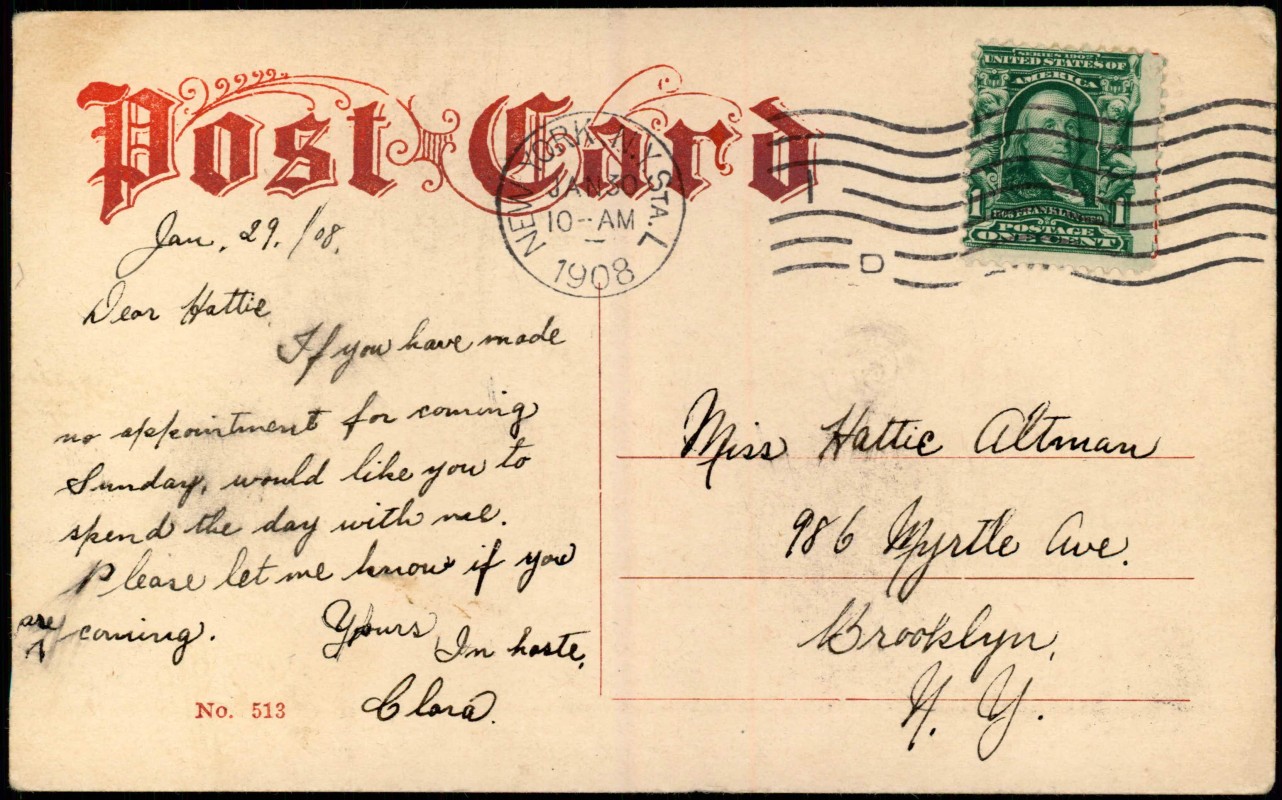 Post Card
NEW YORK, N.Y. STA. L
JAN 30
10-AM
1908
1
D
SERIES 1902
UNITED STATES OF
AMERICA
1 1
1706 FRANKLIN 1790
POSTAGE
ONE CENT
Jan. 29. /08.
Dear Hattie
If you have made
no appointment for coming
Sunday, would like you to
spend the day with me.
Please let me know if you
are
^ coming.
Yours
In haste,
Clara.
No. 513
Miss Hattie Altman
986 Myrtle Ave.
Brooklyn,
N. Y.